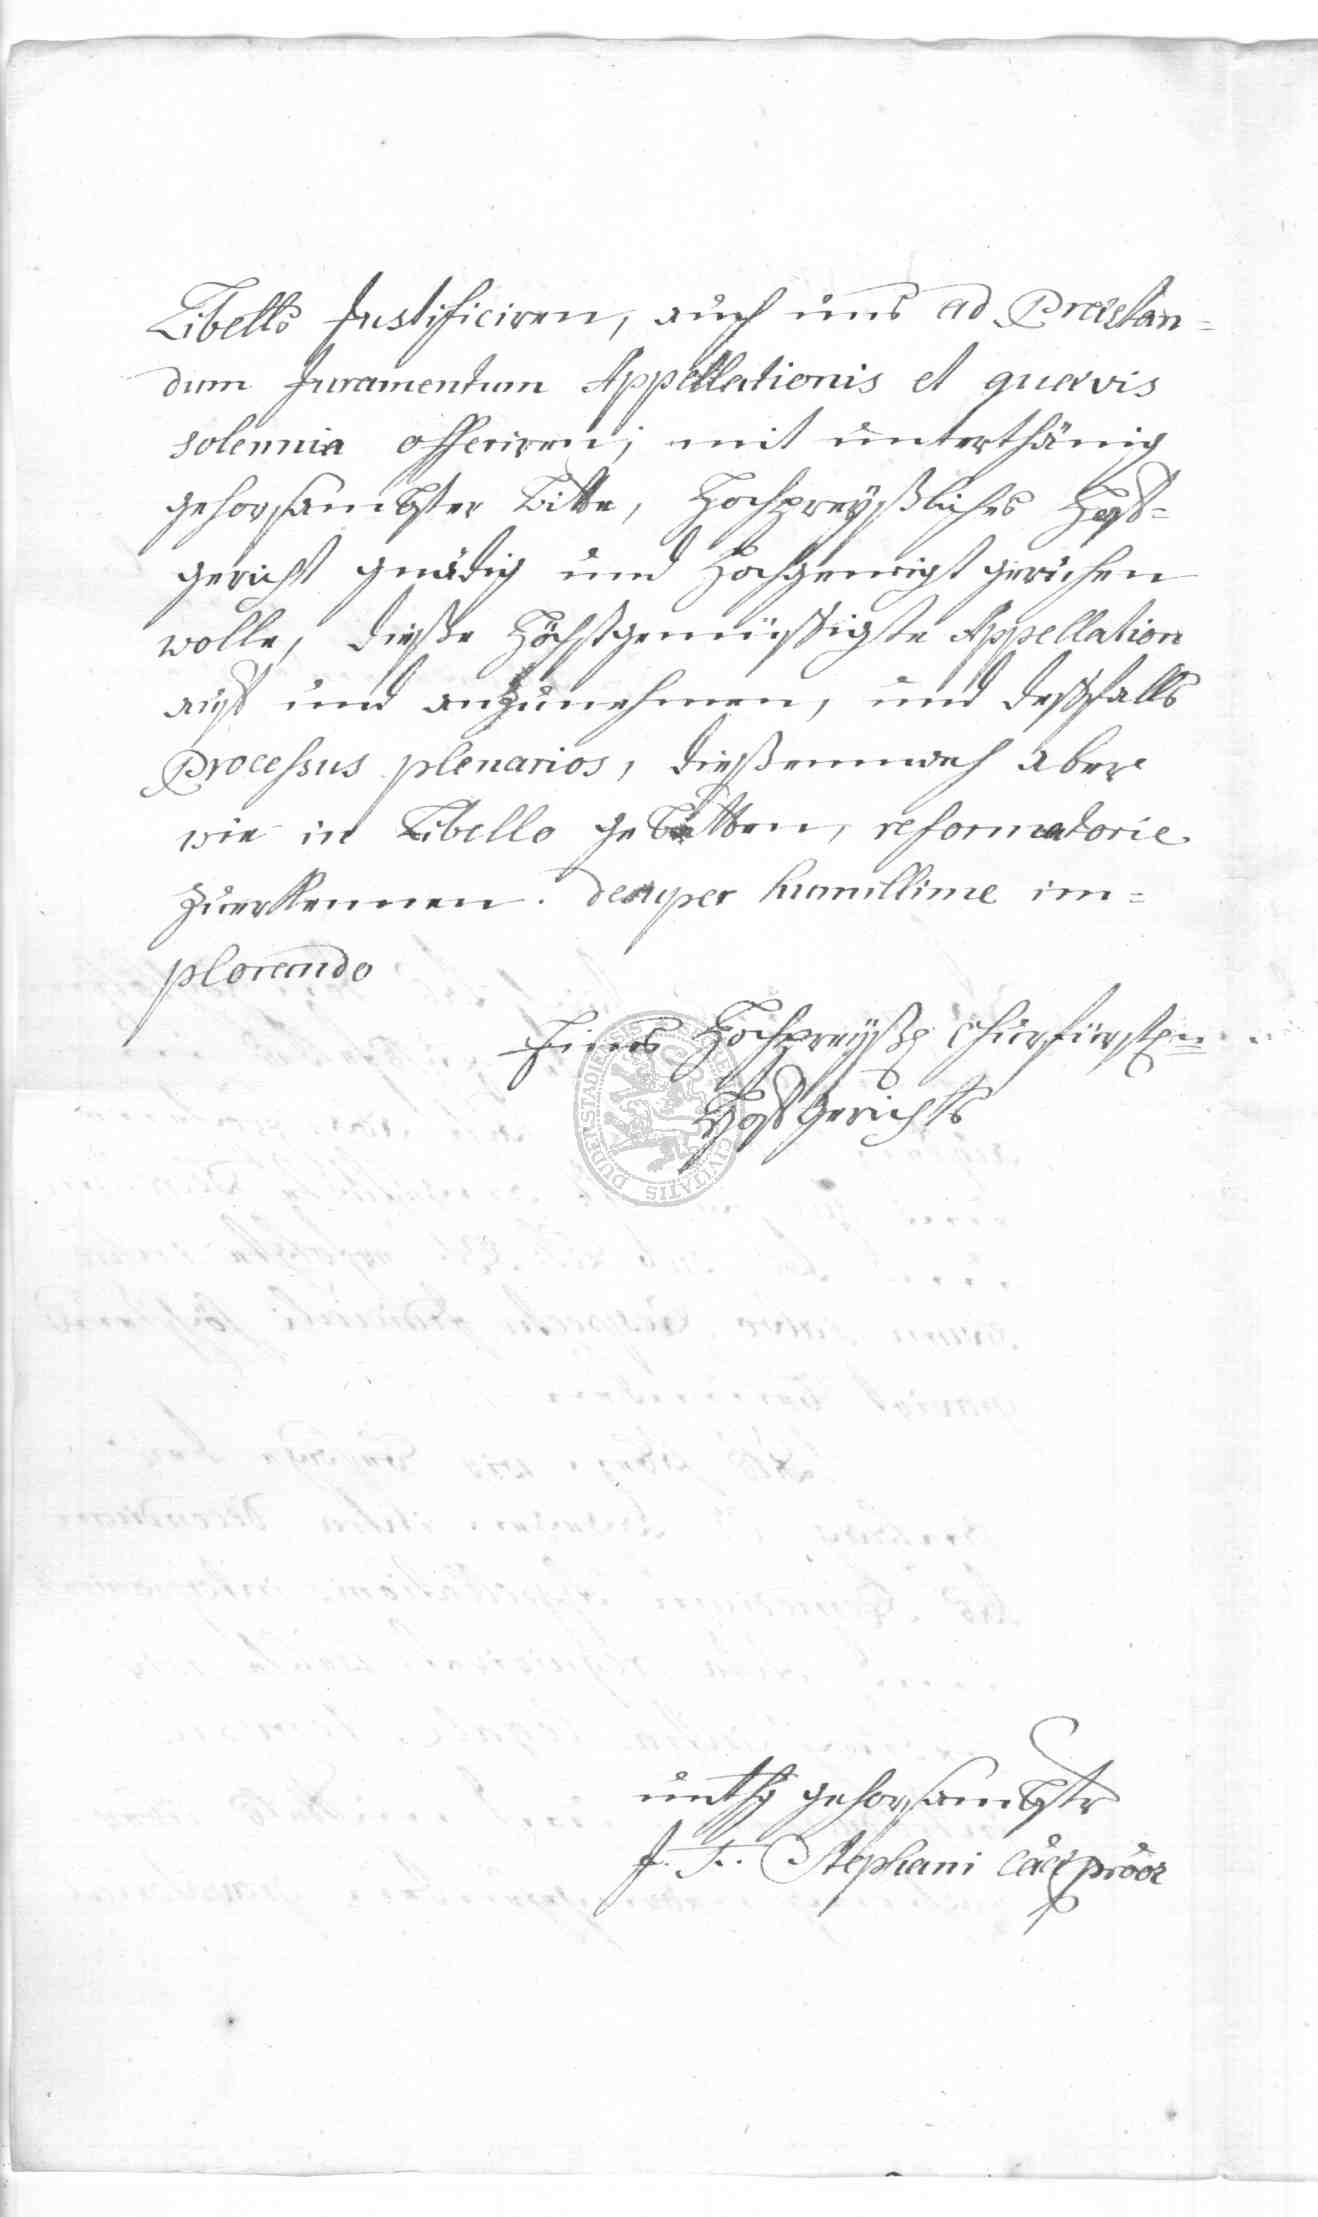 Libello Justificiren, auch uns ad Praestan=
dum Juramentum Appellationis et quaevis
solennia offeriren; mit unterthänig
gehorsambster Bitte, Hochpreyßliches Hoff=
gericht gnädig und Hochgeneigt geruhen
wolle, dieße Höchstgemüßigte Appellation
auff und anzunehmen, und deßfalls
Processus plenarios, dießemnach aber
wie in Libello gebätten, reformatorie
zuerkennen. desuper humillime im=
plorando
Eines Hochpreyßl Churfürstln
Hoffgerichts
unthg gehorsambster
J. F. Stephani
DUDERSTADIENSIS CIVITATIS